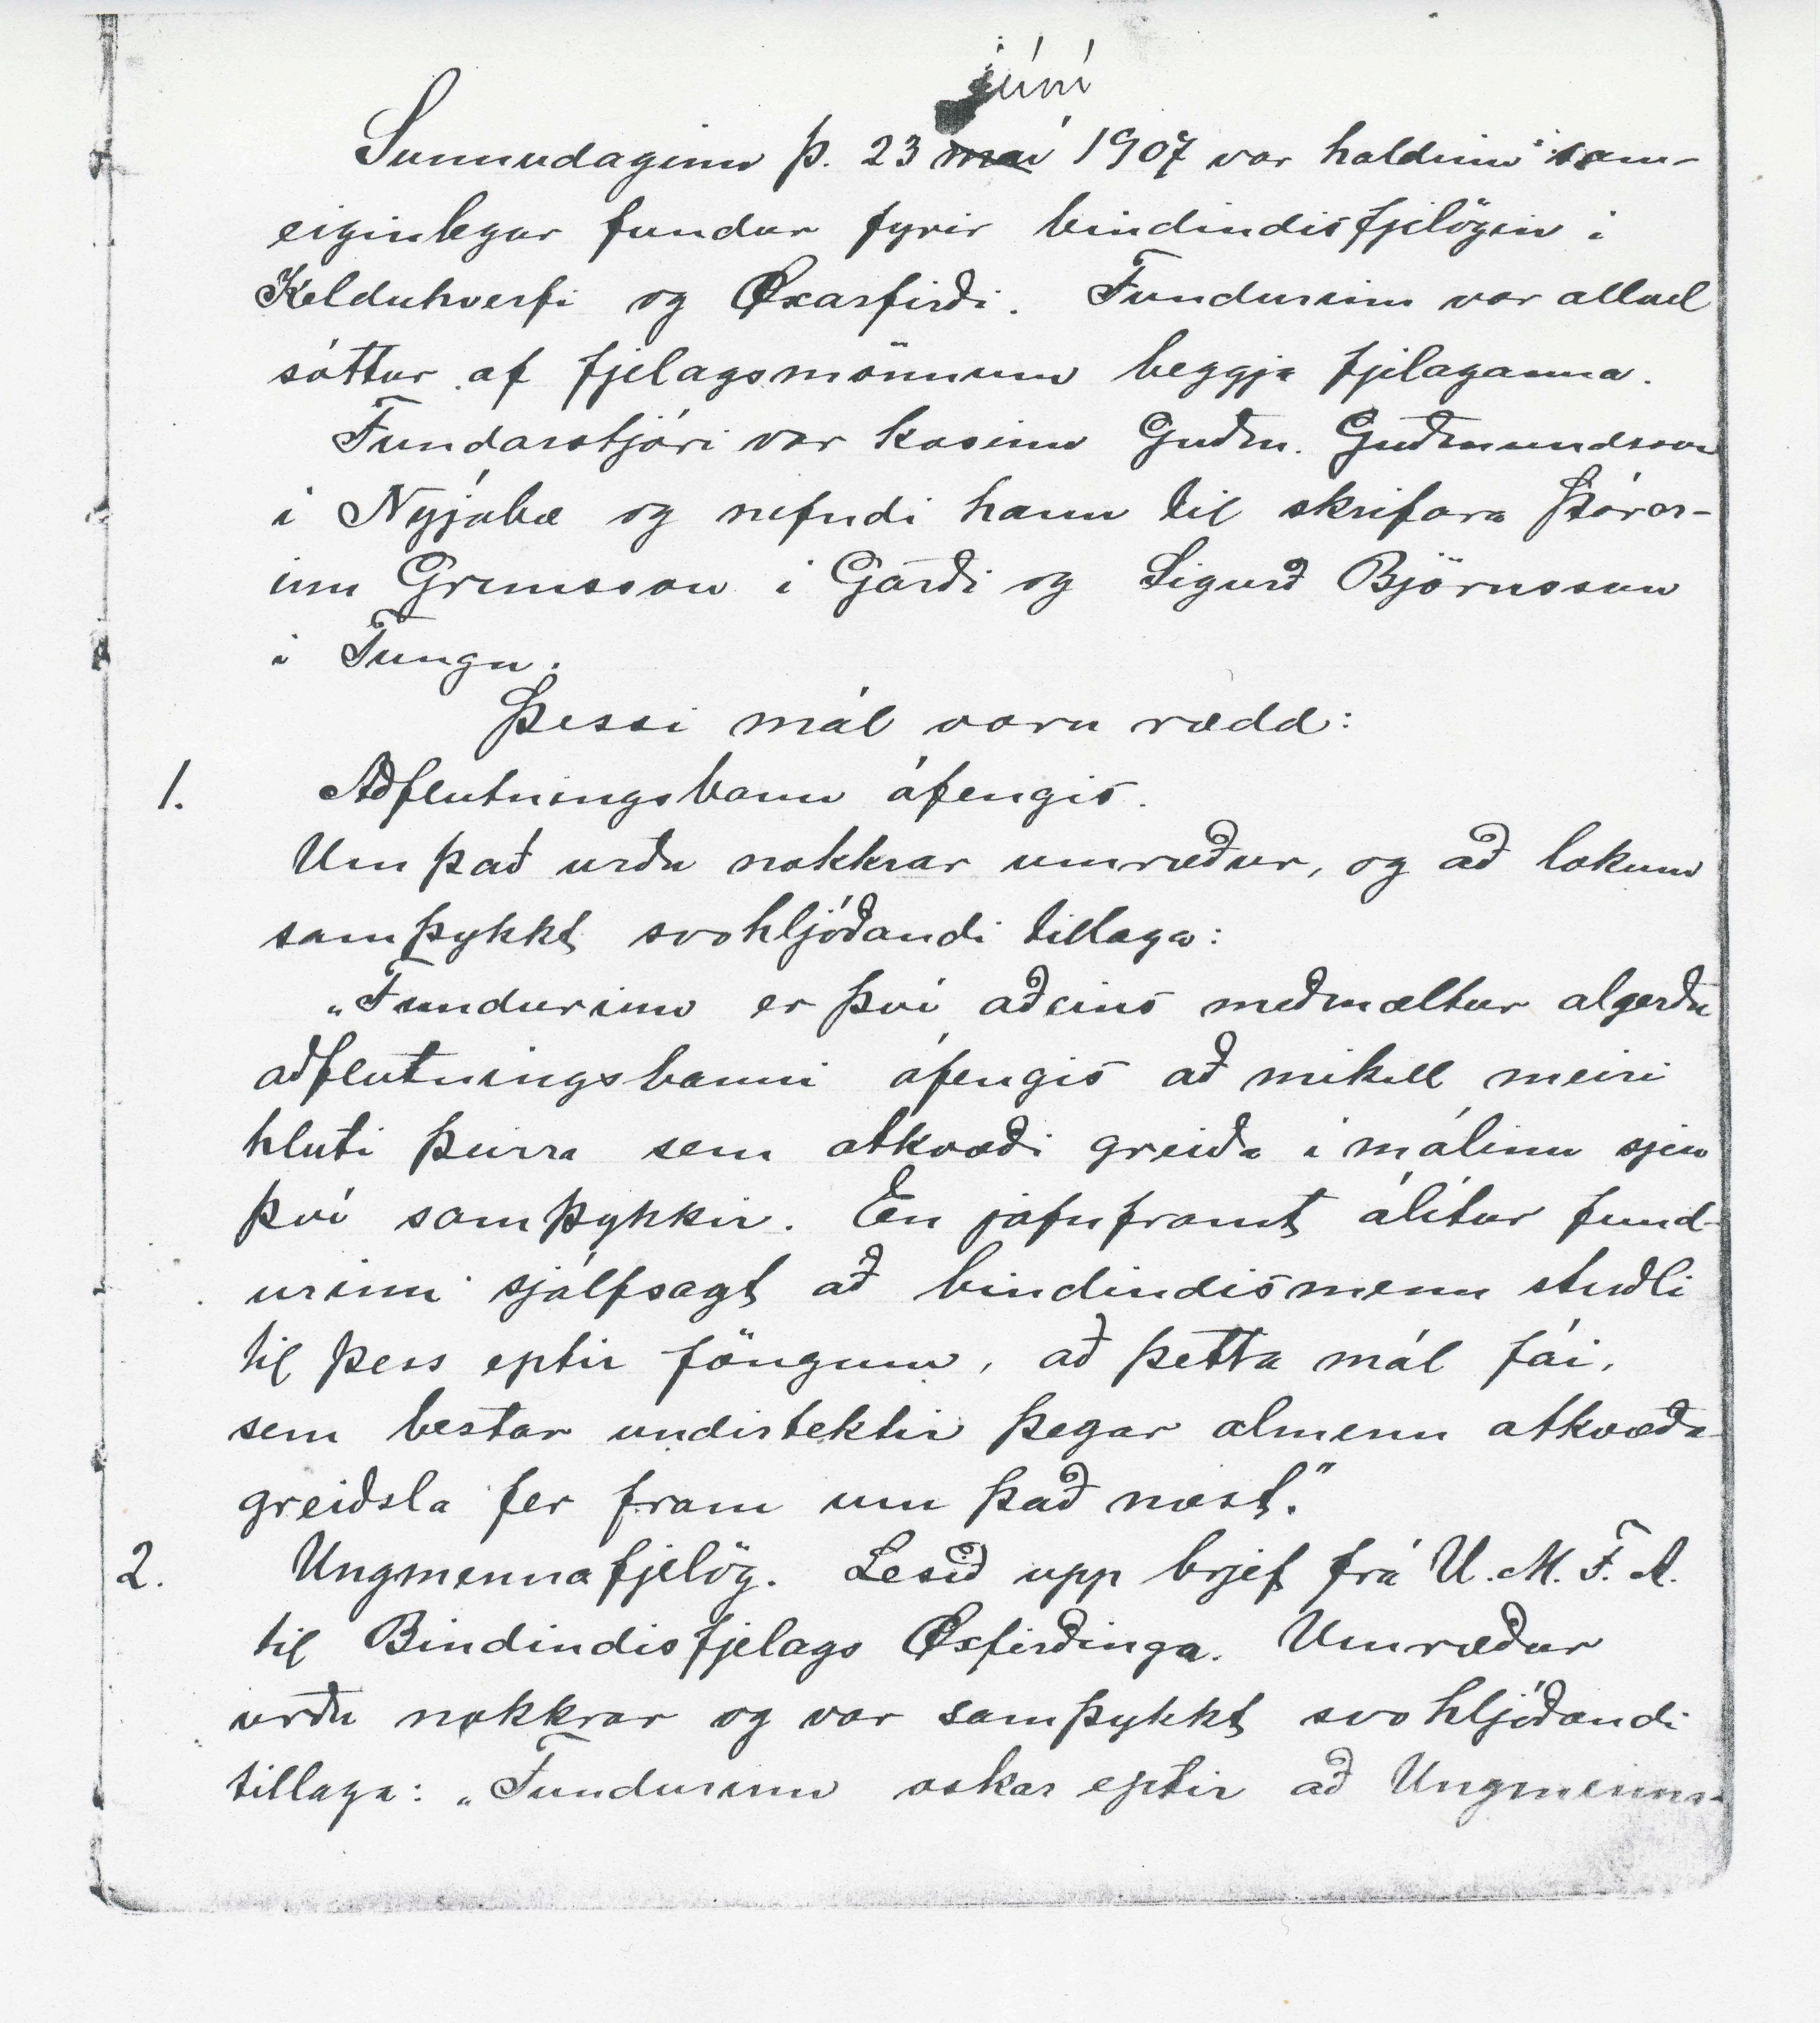 júní
Sunnudaginn þ. 23 maí 1907 var haldinn sam-
eiginlegur fundur fyrir bindindisfjelögin í
Kelduhverfi og Øxarfirði. Fundurinn var allvel
sóttur af fjelagsmönnum beggja fjelaganna.
Fundarstjóri var kosinn Guðm. Guðmundsson
í Nýjabæ og nefndi hann til skrifara Þórar-
inn Grímsson í Garði og Sigurð Björnsson
í Tungu.
Þessi mál voru rædd:
1. Aðflutningsbann áfengis.
Um það urðu nokkrar umræður, og að lokum
samþykkt svohljóðandi tillaga:
„Fundurinn er því aðeins meðmæltur algerðu
aðflutningsbanni áfengis að mikill meiri
hluti þeirra sem atkvæði greiða í málinu sjeu
því samþykkir. En jafnframt álítur fund-
urinn sjálfsagt að bindindismenn stuðli
til þess eptir föngum, að þetta mál fái,
sem bestar undirtektir þegar almenn atkvæða-
greiðsla fer fram um það næst."
2. Ungmennafjelög. Lesið upp brjef frá U. M. F. A.
til Bindindisfjelags Øxfirðinga. Umræður
urðu nokkrar og var samþykkt svohljóðandi
tillaga: „Fundurinn óskar eptir að Ungmenna-